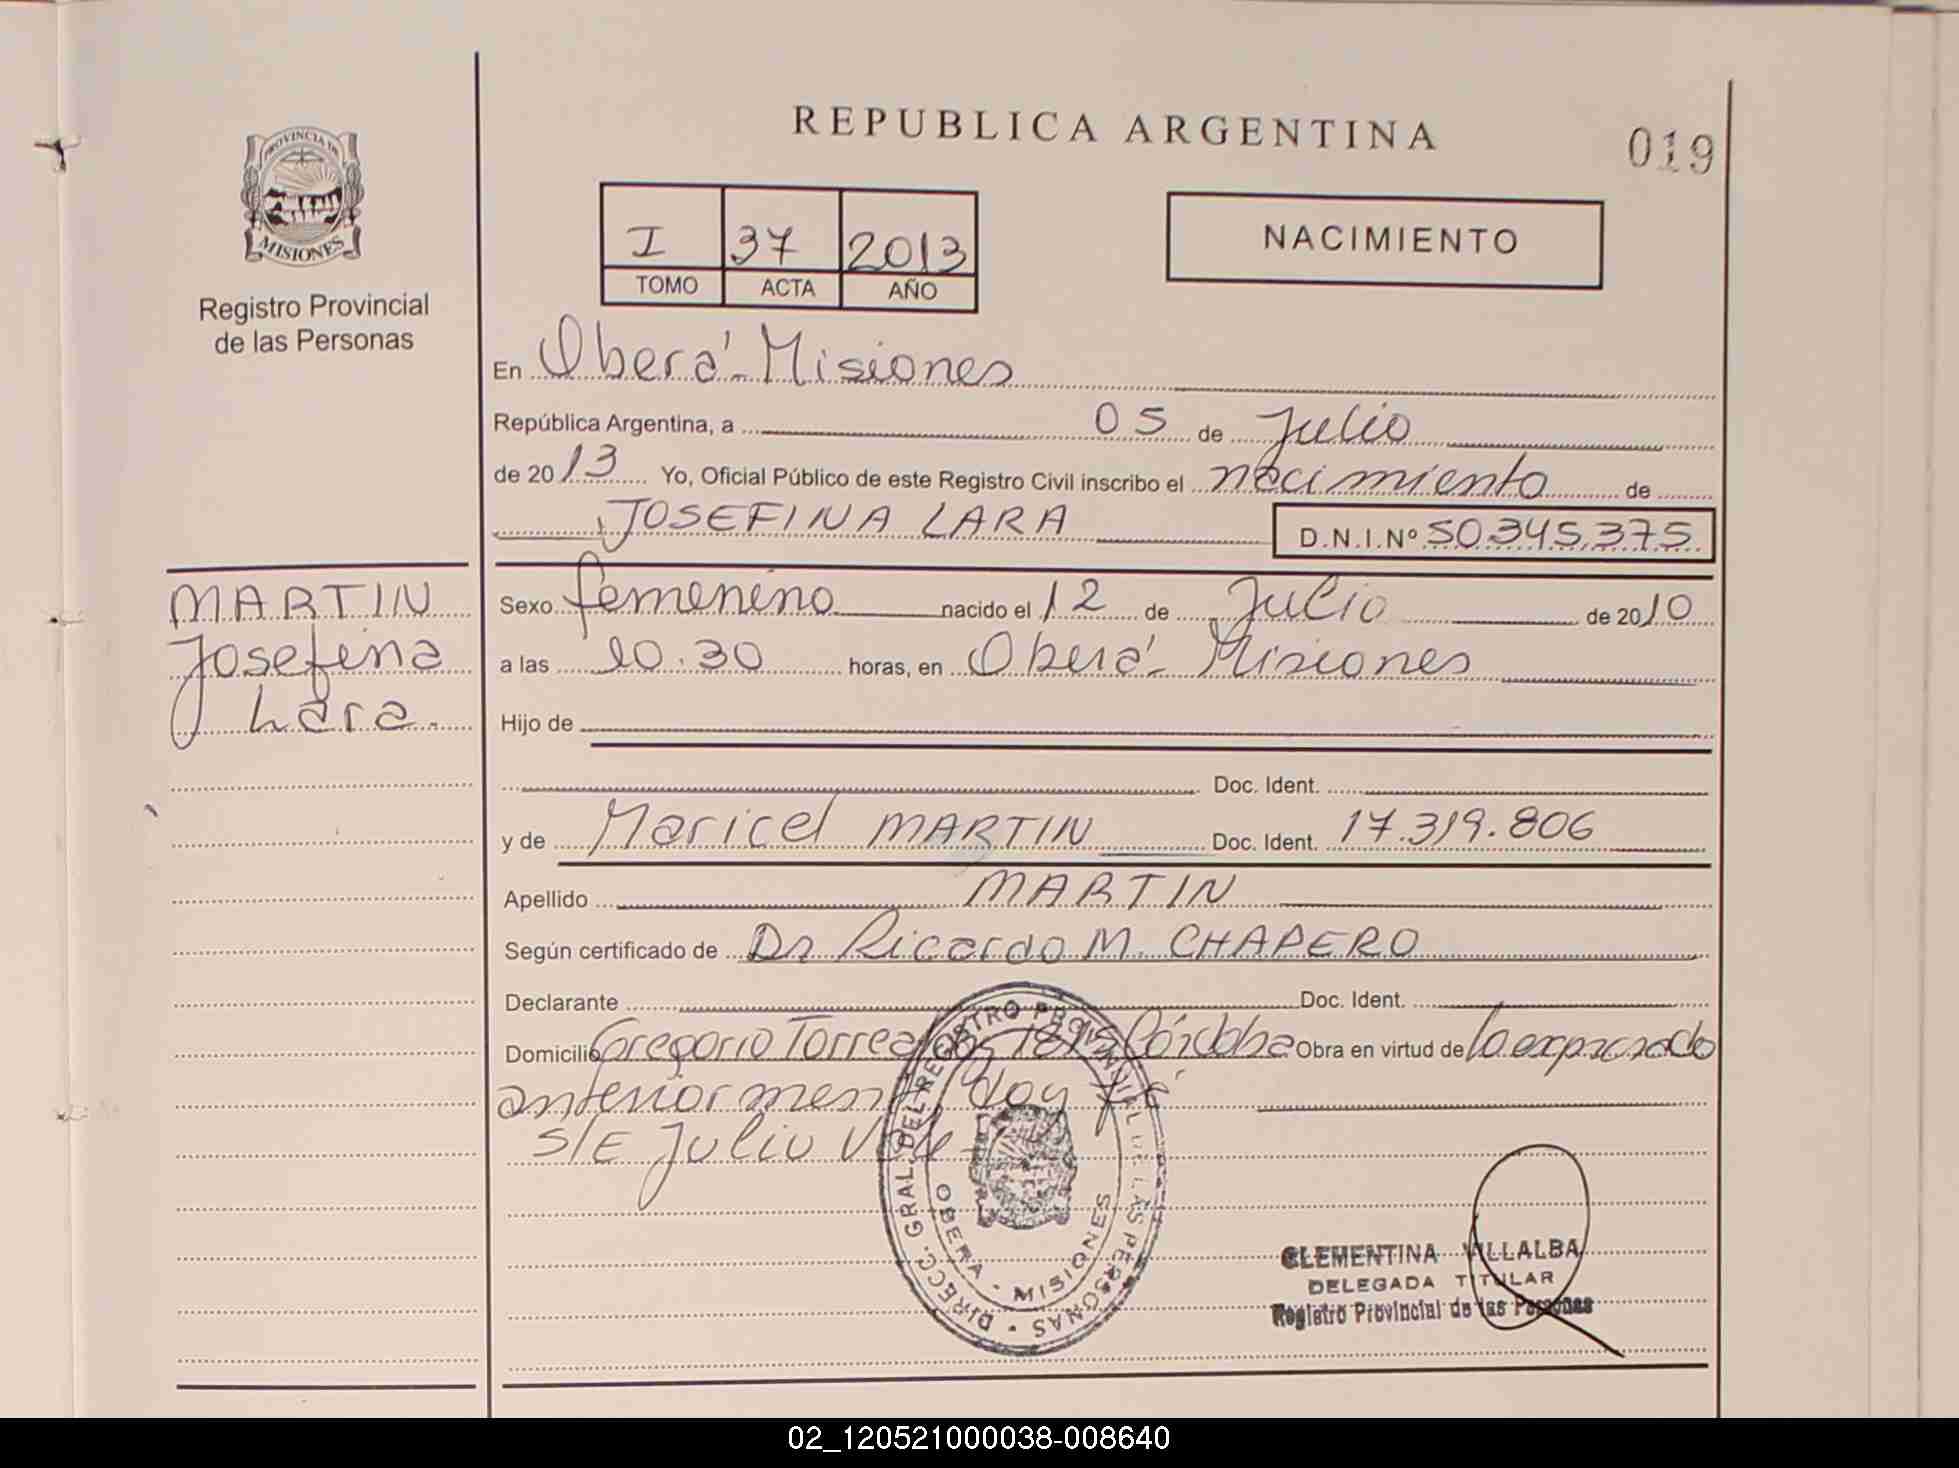 REPUBLICA ARGENTINA
019
PROVINCIA DE
MISIONES
Registro Provincial
de las Personas
I 37 2013
TOMO ACTA AÑO
NACIMIENTO
En Oberá - Misiones
República Argentina, a 05 de Julio
de 2013 Yo, Oficial Público de este Registro Civil inscribo el nacimiento de
JOSEFINA LARA D.N.I.Nº 50.345.375
MARTIN
Josefina
Lara.
Sexo femenino nacido el 12 de Julio de 2010
a las 10.30 horas, en Oberá - Misiones
Hijo de
Doc. Ident.
y de Maricel MARTIN Doc. Ident. 17.319.806
Apellido MARTIN
Según certificado de Dr Ricardo M. CHAPERO
Declarante Doc. Ident.
Domicilio Gregorio 1815 Córdoba Obra en virtud de lo expresado
doy fé
S/E Julio Vale
DIRECC. GRAL. DEL REGISTRO PROVINCIAL DE LAS PERSONAS
OBERA - MISIONES
CLEMENTINA VILLALBA
DELEGADA TITULAR
Registro Provincial de las Personas
02_120521000038-008640